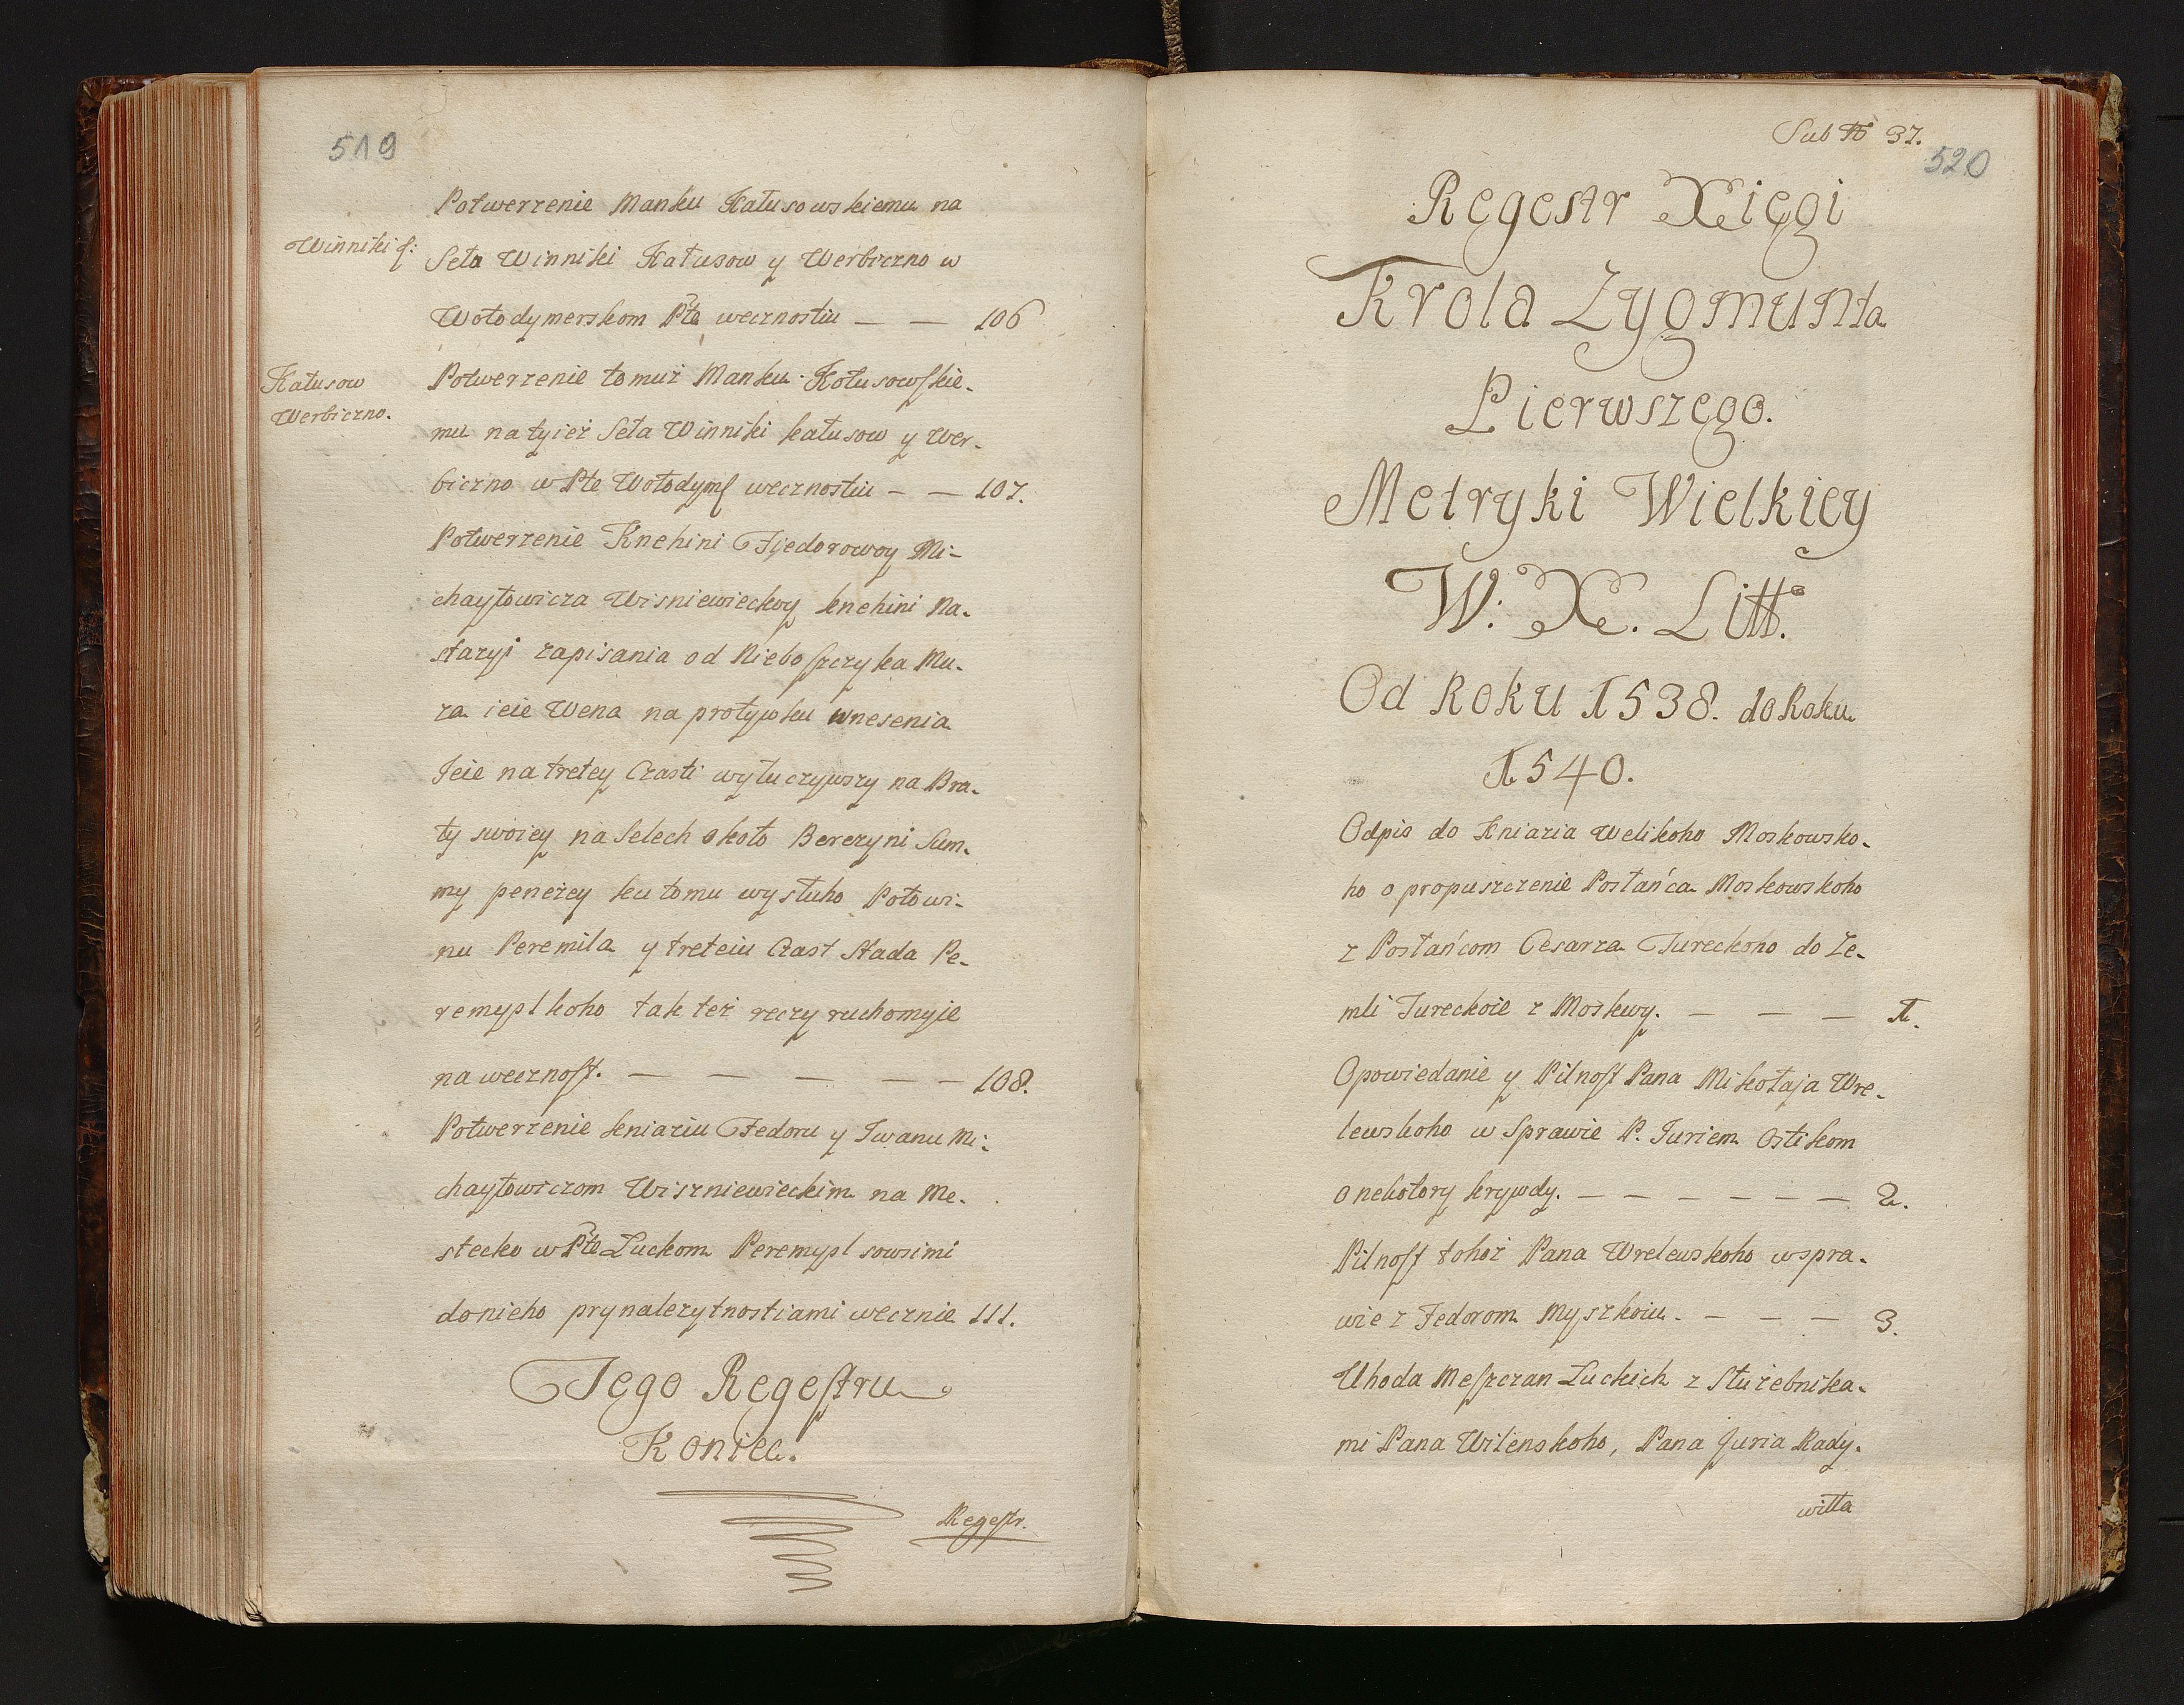 519
Potwerzenie Manku Kałusowskiemu na
Winniki f:
Seła Winniki Kałusow y Werbiczno w
Wołodymerskom Pte wecznostiu — — 106
Kałusow
Werbiczno.
Potwerzenie tomuż Manku Kołusowskie-
mu na tyież Seła Winniki kałusow y Wer-
biczno w Pte Wołodymſ wecznostiu — — 107.
Potwerzenie Knehini Fjedorowoy Mi-
chayłowicza Wisniewieckoy knehini Na-
stazyi zapisania od Nieboſzczyka Mu-
za ieie Wena na protywku wnesenia
Jeie na tretey Czasti wyłuczywszy na Bra-
ty swoiey na Selech około Berezyni Sum-
my penezey ku tomu wysłuho Połowi-
nu Peremila y treteiu Czast Stada Pe-
remyslkoho tak też reczy ruchomyie
na wecznoſt. — — — — — 108.
Potwerzenie kniaziu Fedoru y Iwanu Mi-
chayłowiczom Wiszniewieckim na Me-
stecko w Pte Łuckom Peremysl sowsimi
do nieho prynalezytnostiami wecznie 111.
Tego Regeſtru
Koniec.
Regeſtr.
Sub № 37.
520
Regestr Xięgi
Krola Zygmunta
Pierwszego.
Metryki Wielkiey
W: X. Litt.
Od Roku 1538. do Roku
1540.
Odpis do Kniazia Welikoho Moskowsko-
ho o propuszczenie Posłańca Moskowskoho
z Posłańcom Cesarza Tureckoho do Ze-
mli Tureckoie z Moskwy. — — — 1.
Opowiedanie y Pilnoſt Pana Mikołaja Wre-
lewskoho w Sprawie P. Juriem Ostikom
o nekotory krywdy. — — — — — — 2.
Pilnoſt tohoż Pana Wrelewskoho w spra-
wie z Fedorom Myszkoiu. — — — 3.
Uhoda Meſzczan Łuckich z Służebnika-
mi Pana Wilenskoho, Pana Juria Rady-
wiłła